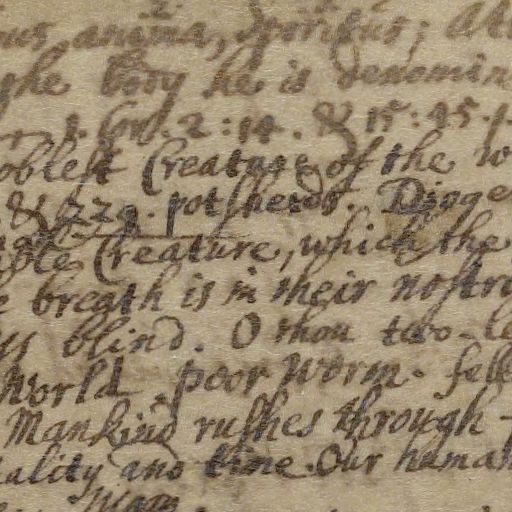 anima, spiritus; 
the body he is denomin
1. Cor. 2: 14. & 15: 45.
oblest Creature of the w
potsherds. Dioge
able Creature, which the
breath is in their nostr
blind. O thou two-le
world. poor worm. fell
Mankind rushes through
ality and time. Our human
Man